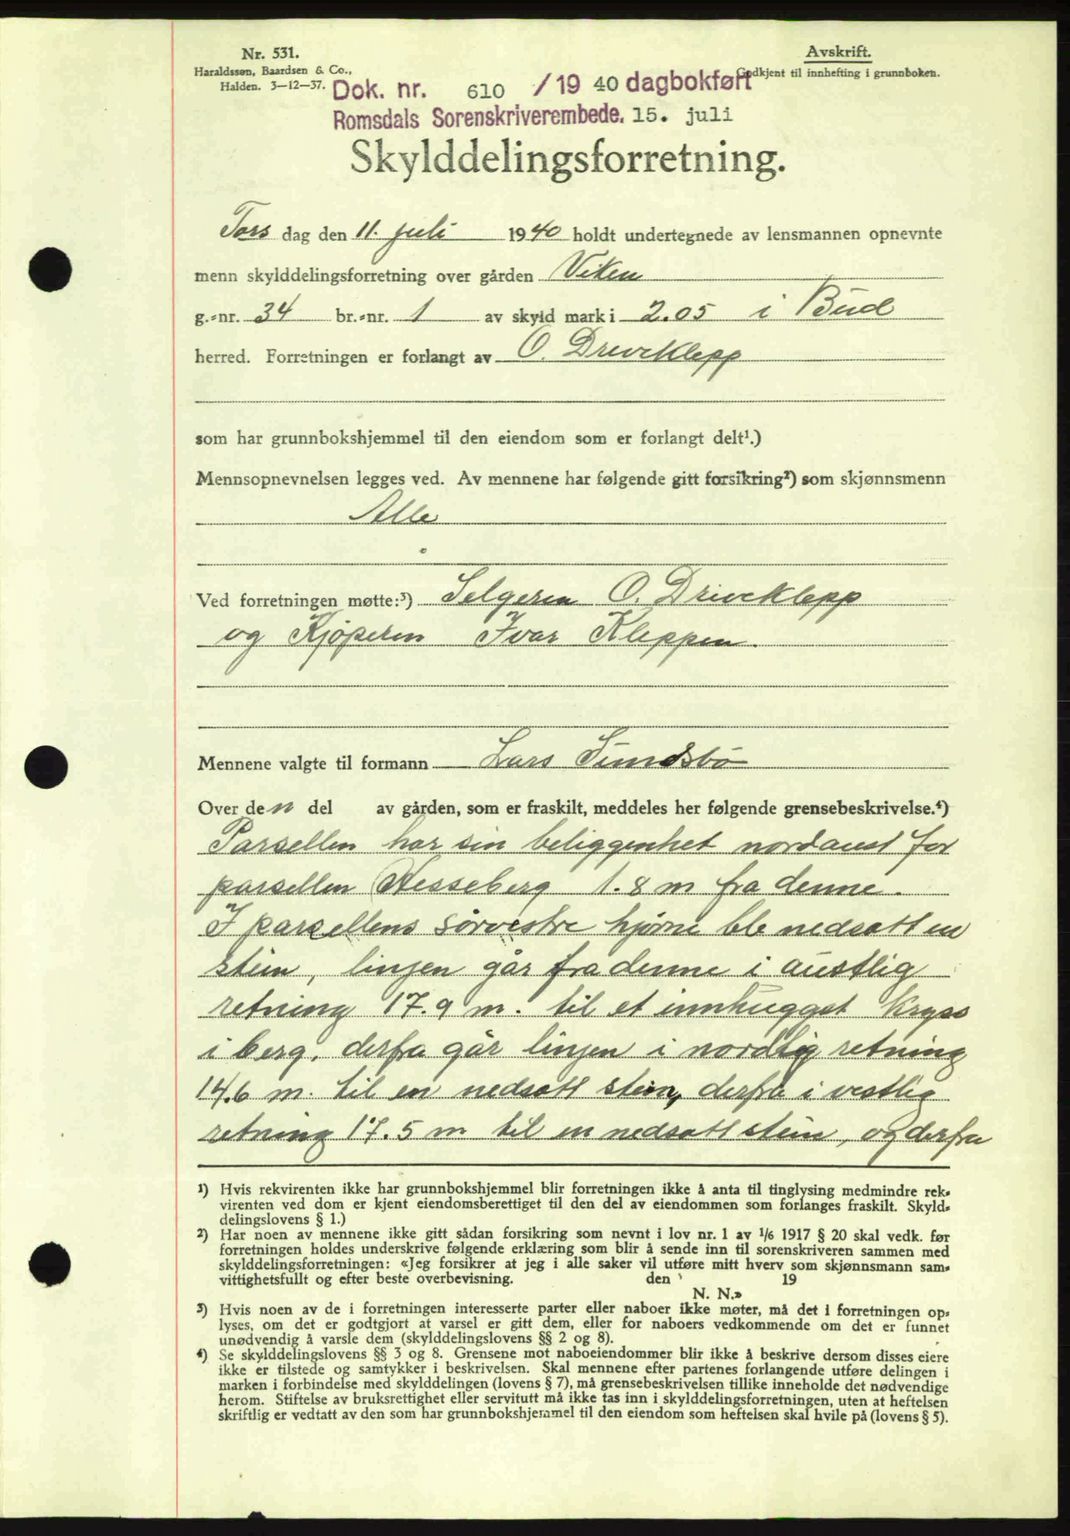 Nr. 531.
Haraldssøn, Baardsen & Co.,
Halden. 3—12—37.
Avskrift.
Godkjent til innhefting i grunnboken.
Dok. nr. 610 / 19 40 dagbokført
Romsdals Sorenskriverembede. 15. juli
Skylddelingsforretning.
Tors dag den 11. juli 1940 holdt undertegnede av lensmannen opnevnte
menn skylddelingsforretning over gården Viken
g.-nr. 34 br.-nr. 1 av skyld mark i 2.05 i Bud
herred. Forretningen er forlangt av O. Driveklepp
som har grunnbokshjemmel til den eiendom som er forlangt delt¹.)
Mennsopnevnelsen legges ved. Av mennene har følgende gitt forsikring²) som skjønnsmenn
Alle
Ved forretningen møtte:³) Selgeren O. Driveklepp
og Kjøperen Ivar Kleppen.
Mennene valgte til formann Lars Sundsbö
Over den del av gården, som er fraskilt, meddeles her følgende grensebeskrivelse.⁴)
Parsellen har sin beliggenhet nordaust for
parsellen Hesseberg 1.8 m fra denne.
I parsellens sörvestre hjørne ble nedsatt en
stein, linjen går fra denne i austlig
retning 17.9 m. til et innhugget Kryss
i berg, derfra går linjen i nordlig retning
14.6 m. til en nedsatt stein, derfra i vestlig
retning 17.5 m til en nedsatt stein, og derfra
¹) Hvis rekvirenten ikke har grunnbokshjemmel blir forretningen ikke å anta til tinglysing medmindre rek-
virenten ved dom er kjent eiendomsberettiget til den del av eiendommen som forlanges fraskilt. Skyld-
delingslovens § 1.)
²) Har noen av mennene ikke gitt sådan forsikring som nevnt i lov nr. 1 av 1/6 1917 § 20 skal vedk. før
forretningen holdes underskrive følgende erklæring som blir å sende inn til sorenskriveren sammen med
skylddelingsforretningen: «Jeg forsikrer at jeg i alle saker vil utføre mitt hverv som skjønnsmann sam-
vittighetsfullt og efter beste overbevisning. den 19
N. N.»
³) Hvis noen av de i forretningen interesserte parter eller naboer ikke møter, må det i forretningen op-
lyses, om det er godtgjort at varsel er gitt dem, eller for naboers vedkommende om det er funnet
unødvendig å varsle dem (skylddelingslovens §§ 2 og 8).
⁴) Se skylddelingslovens §§ 3 og 8. Grensene mot naboeiendommer blir ikke å beskrive dersom disses eiere
ikke er tilstede og samtykker i beskrivelsen. Skal mennene efter partenes forlangende utføre delingen i
marken i forbindelse med skylddelingen (lovens § 7), må grensebeskrivelsen tillike inneholde det nødvendige
herom. Stiftelse av bruksrettighet eller servitutt må ikke tas inn i skylddelingsforretningen, uten at heftelsen
skriftlig er vedtatt av den som har grunnbokshjemmel til den eiendom som heftelsen skal hvile på (lovens § 5).